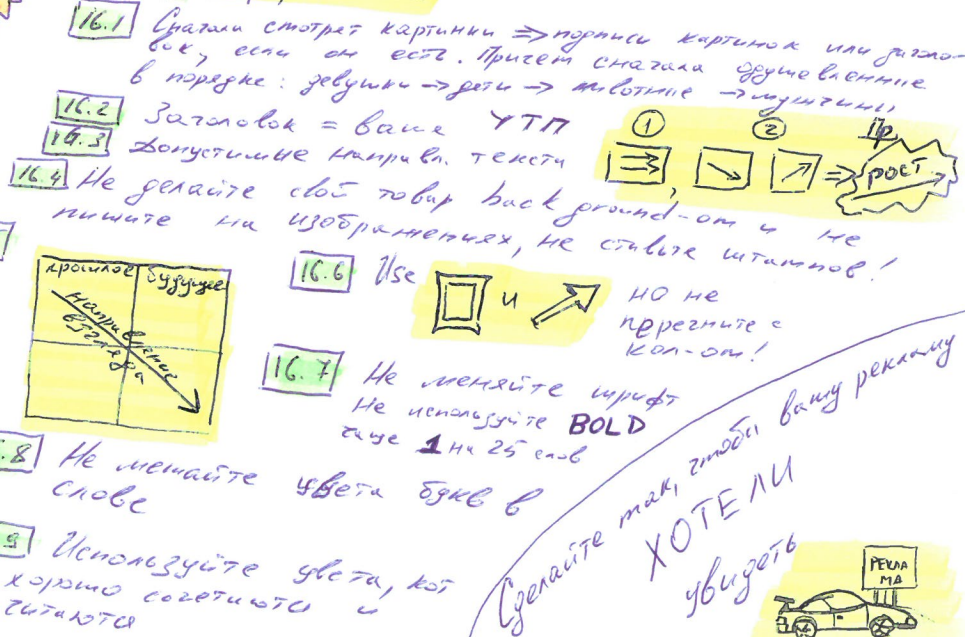 16.1 Сначала смотрят картинки => подписи картинок или заголо-
вок, если он есть. Причем сначала одушевленние
в порядке: девушки → дети → животние → мужчини
16.2 Заголовок = ваше УТП
16.3 Допустимые направл. текста
1 2 Пр.
=> рост
16.4 Не делайте свой товар background-ом и не
пишите на изображениях, не ставьте штампов!
прошлое будущее
направление
взгляда
16.6 Use и но не
перегните с
кол-ом!
16.7 Не меняйте шрифт
Не используйте BOLD
чаще 1 на 25 слов
.8 Не мешайте цвета букв в
слове
9 Используйте цвета, кот
хорошо сочетаются и
читаются
Сделайте так, чтоби вашу рекламу
ХОТЕЛИ
увидеть
РЕКЛА
МА